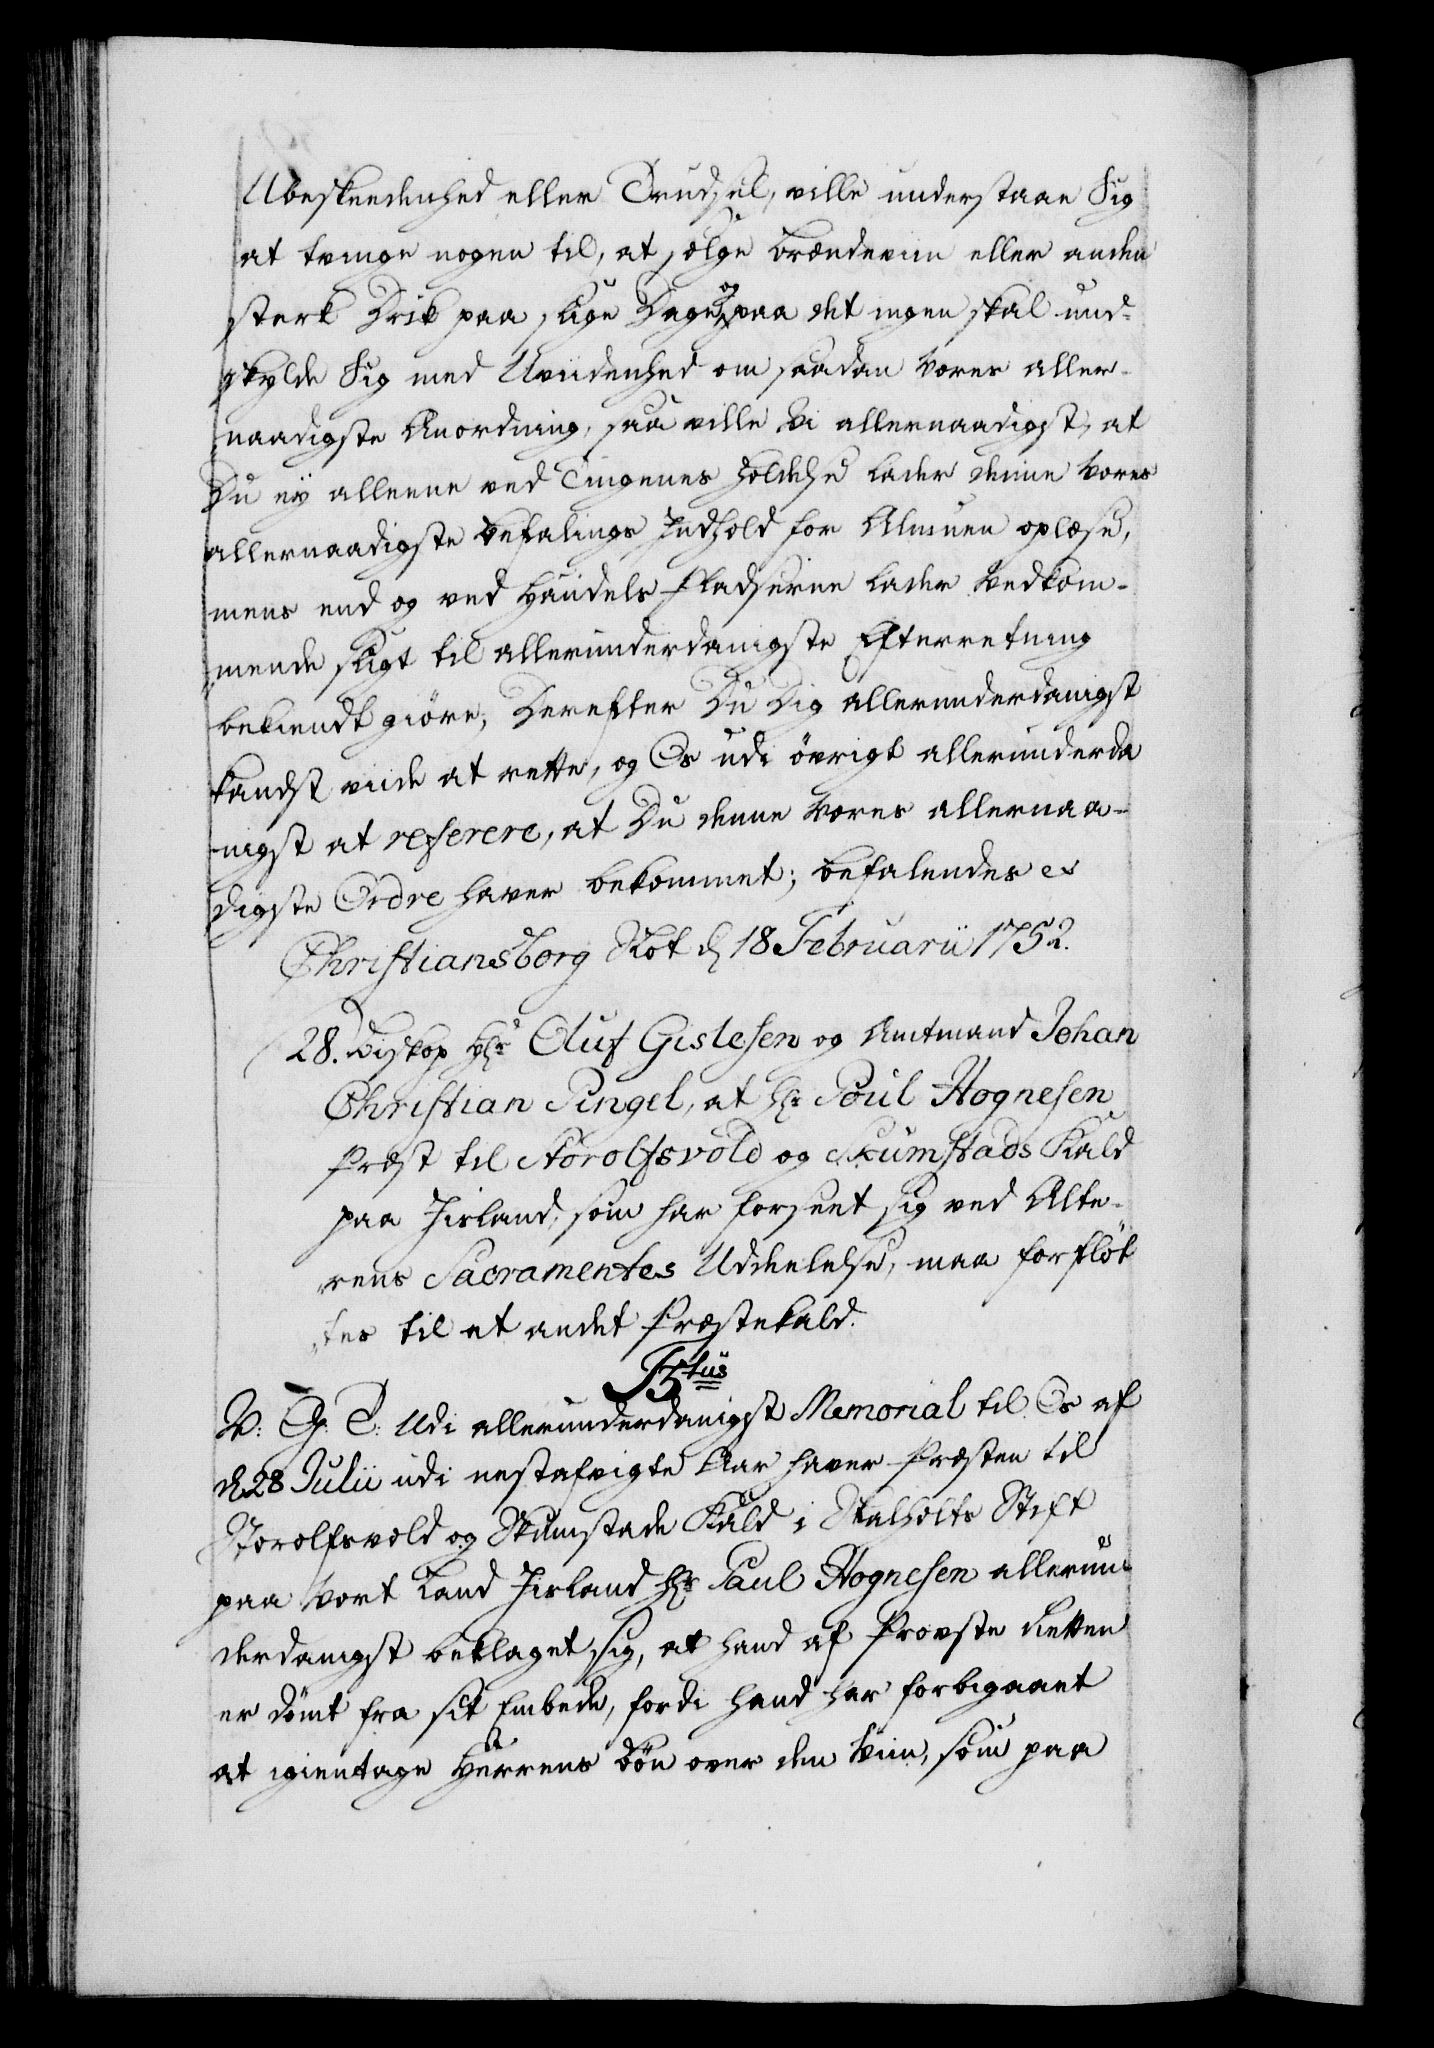 Ubeskeedenhed eller Trudsel, ville understaae Sig
at tvinge nogen til, at sælge Brændeviin eller anden
sterk Drik paa slige Dage, og paa det ingen skal und-
skylde Sig med Uviidenhed om saadan Vores aller-
naadigste Anordning, saa ville Vi allernaadigst, at
Du ey alleene ved Tingenes Holdelse lader denne Vores
allernaadigste Befalings Indhold for Almuen oplæse,
mens end og ved Handels Pladserne lader Vedkom-
mende sligt til allerunderdanigste Efterretning
bekiendtgiöre, Derefter Du Dig allerunderdanigst
kandst viide at rette, og Os udi övrigt allerunderda
nigst at referere, at Du denne Vores allernaa-
digste Ordre haver bekommet; Befalendes etc
Christiansborg Slot d 18 Februarii 1752.
28. Biskop Hr Oluf Gislesen og Amtmand Johan
Christian Pingel, at Hr Poul Hognesen
Præst til Storolfsvold og Skumstads Kald
paa Jisland, som har forseet sig ved Alte-
rens Sacramentes Uddeelelse, maa forflöt
tes til et andet Præstekald.
F5tus
V: G: T: Udi allerunderdanigst Memorial til Os af
d 28 Julii udi nestafvigte Aar haver Præsten til
Storolfsvold og Skumstade Kald i Skalholts Stift
paa Vort Land Jisland Hr Paul Hognesen allerun
derdanigst beklaget sig, at hand af Provste Retten
er dömt fra sit Embede, fordi hand har forbigaaet
at igientage Herrens Bön over den Viin, som paa